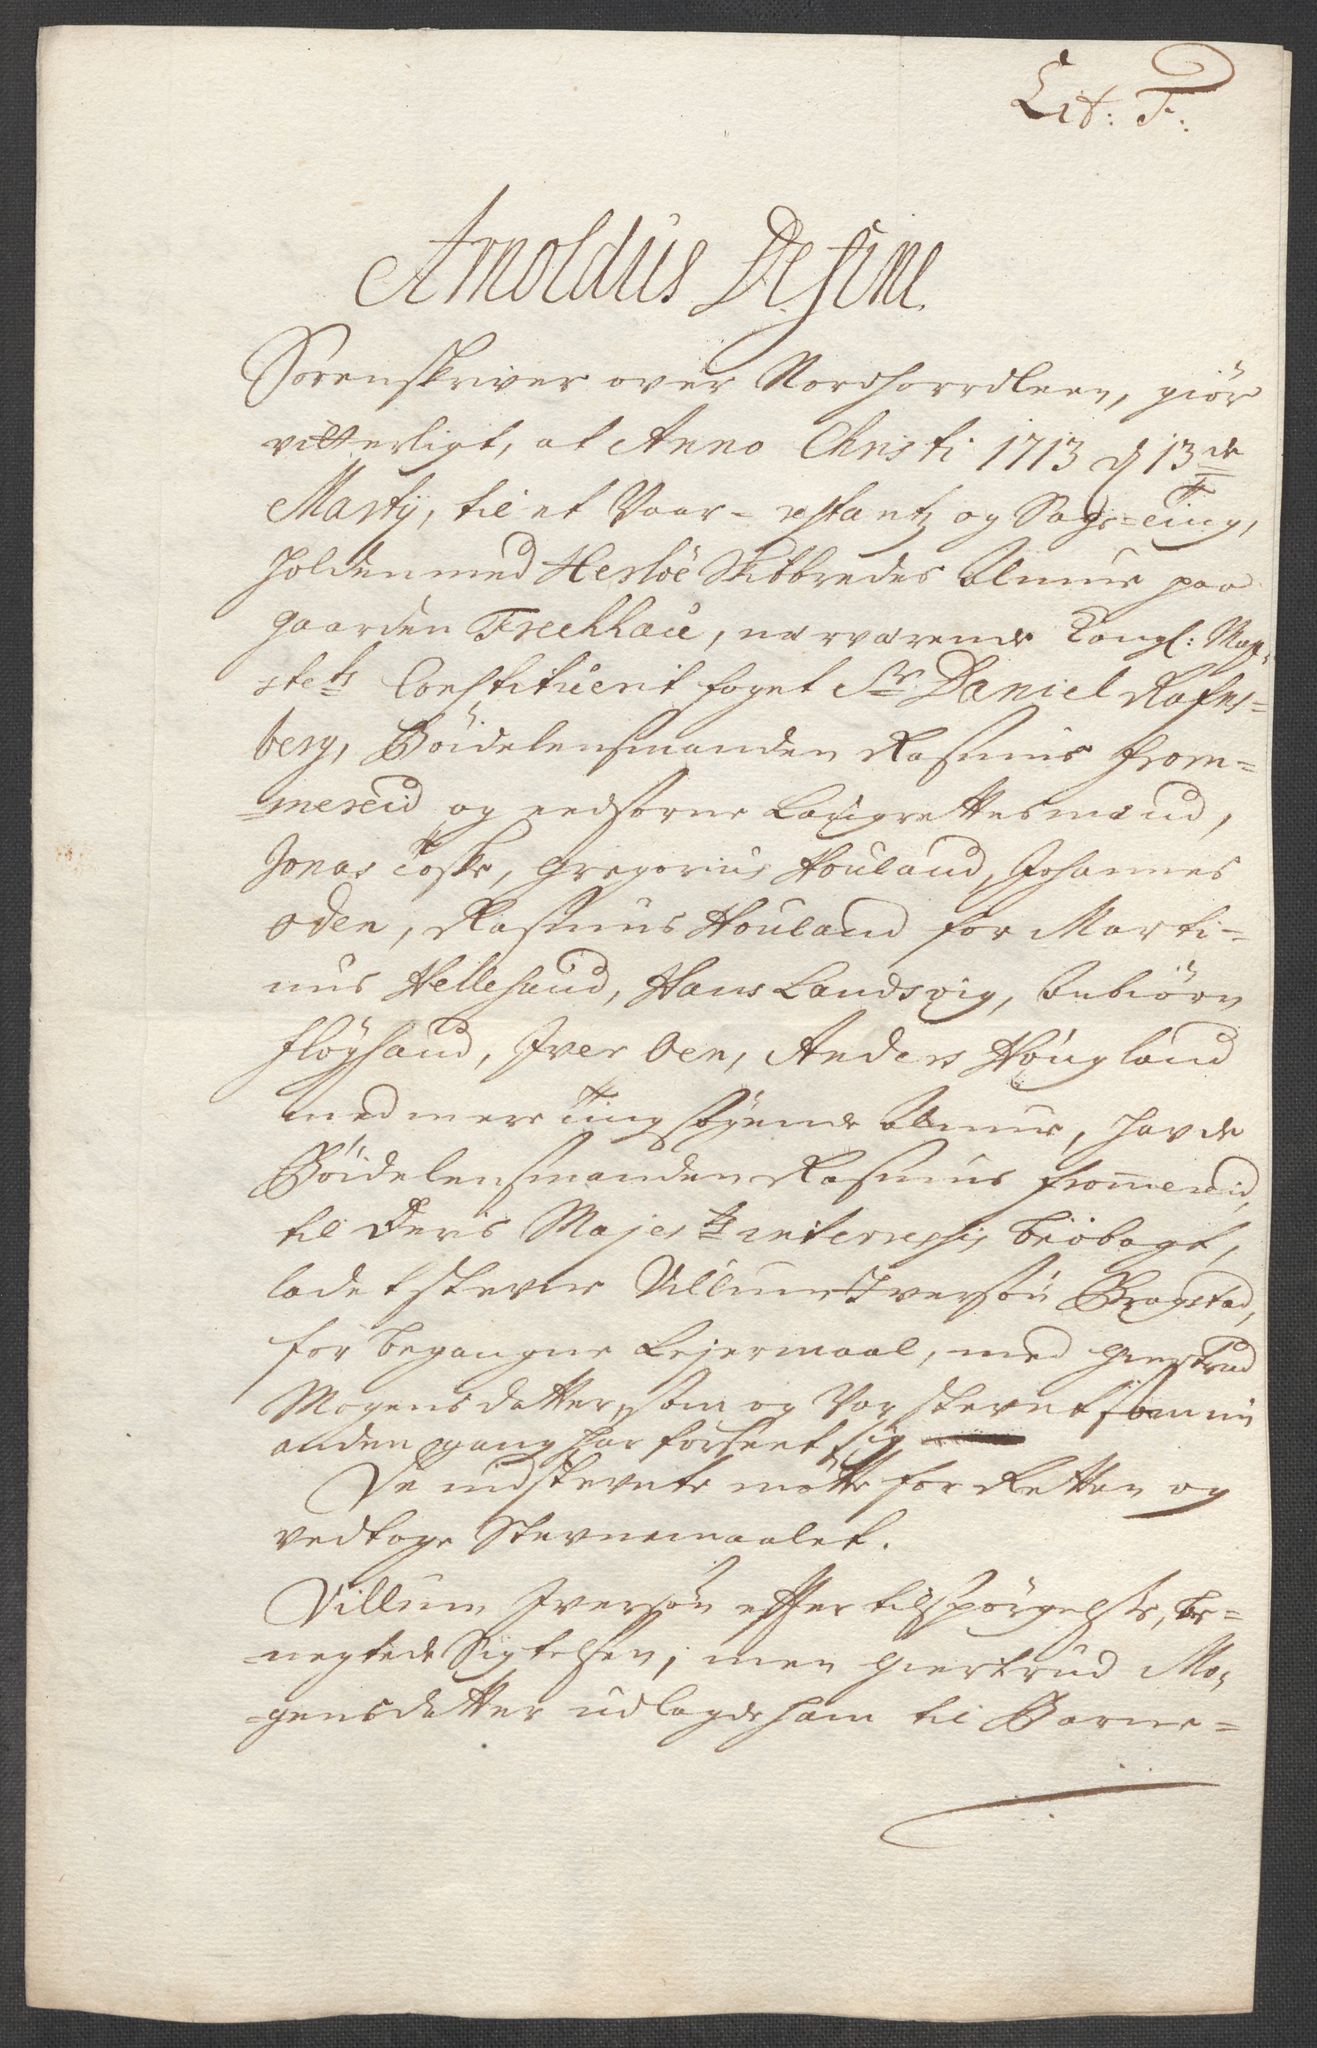 Lit: F:
Arnoldus De fine
Sorenskriver over Nordhorrdleen, giör
vitterligt, at Anno Christi 1713 d 13de
Martij, til et Vaar- restantz og Sage-Ting,
holden med Herlöe Skibbredes Almue paa
gaarden Frechhau, nærværende Kongl: May-
stets Constituerit foget Sr. Daniel Rafns-
berg, Böidelensmanden Rasmus From-
mereid og eedsorne Laugrettesmænd,
Jonas Toske, Gregorius Houland, Johannes
Oden, Rasmus Houland for Marti-
nus Hellesund, Hans Landsvig, Anbiörn
Flöysand, Iver Oen, Anders Hougland
med mere Tingsögende Almue, hafde
Böidelensmanden Rasmus Frommereid,
til Deris Majests interresses beobagt,
ladet stevne Villum Iversön Bragstad,
for begangne Lejermaal, med Giertrud
Mogensdatter, som og var stevnet som nu
anden gang har forseet sig
De indstevnte mötte for Retten og
vedtoge Stevnemaalet.
Villum Iversön efter tilspörgelse, be-
negtede Sigtelsen, men Giertrud Mo-
gensdatter udlagde ham til Barne-